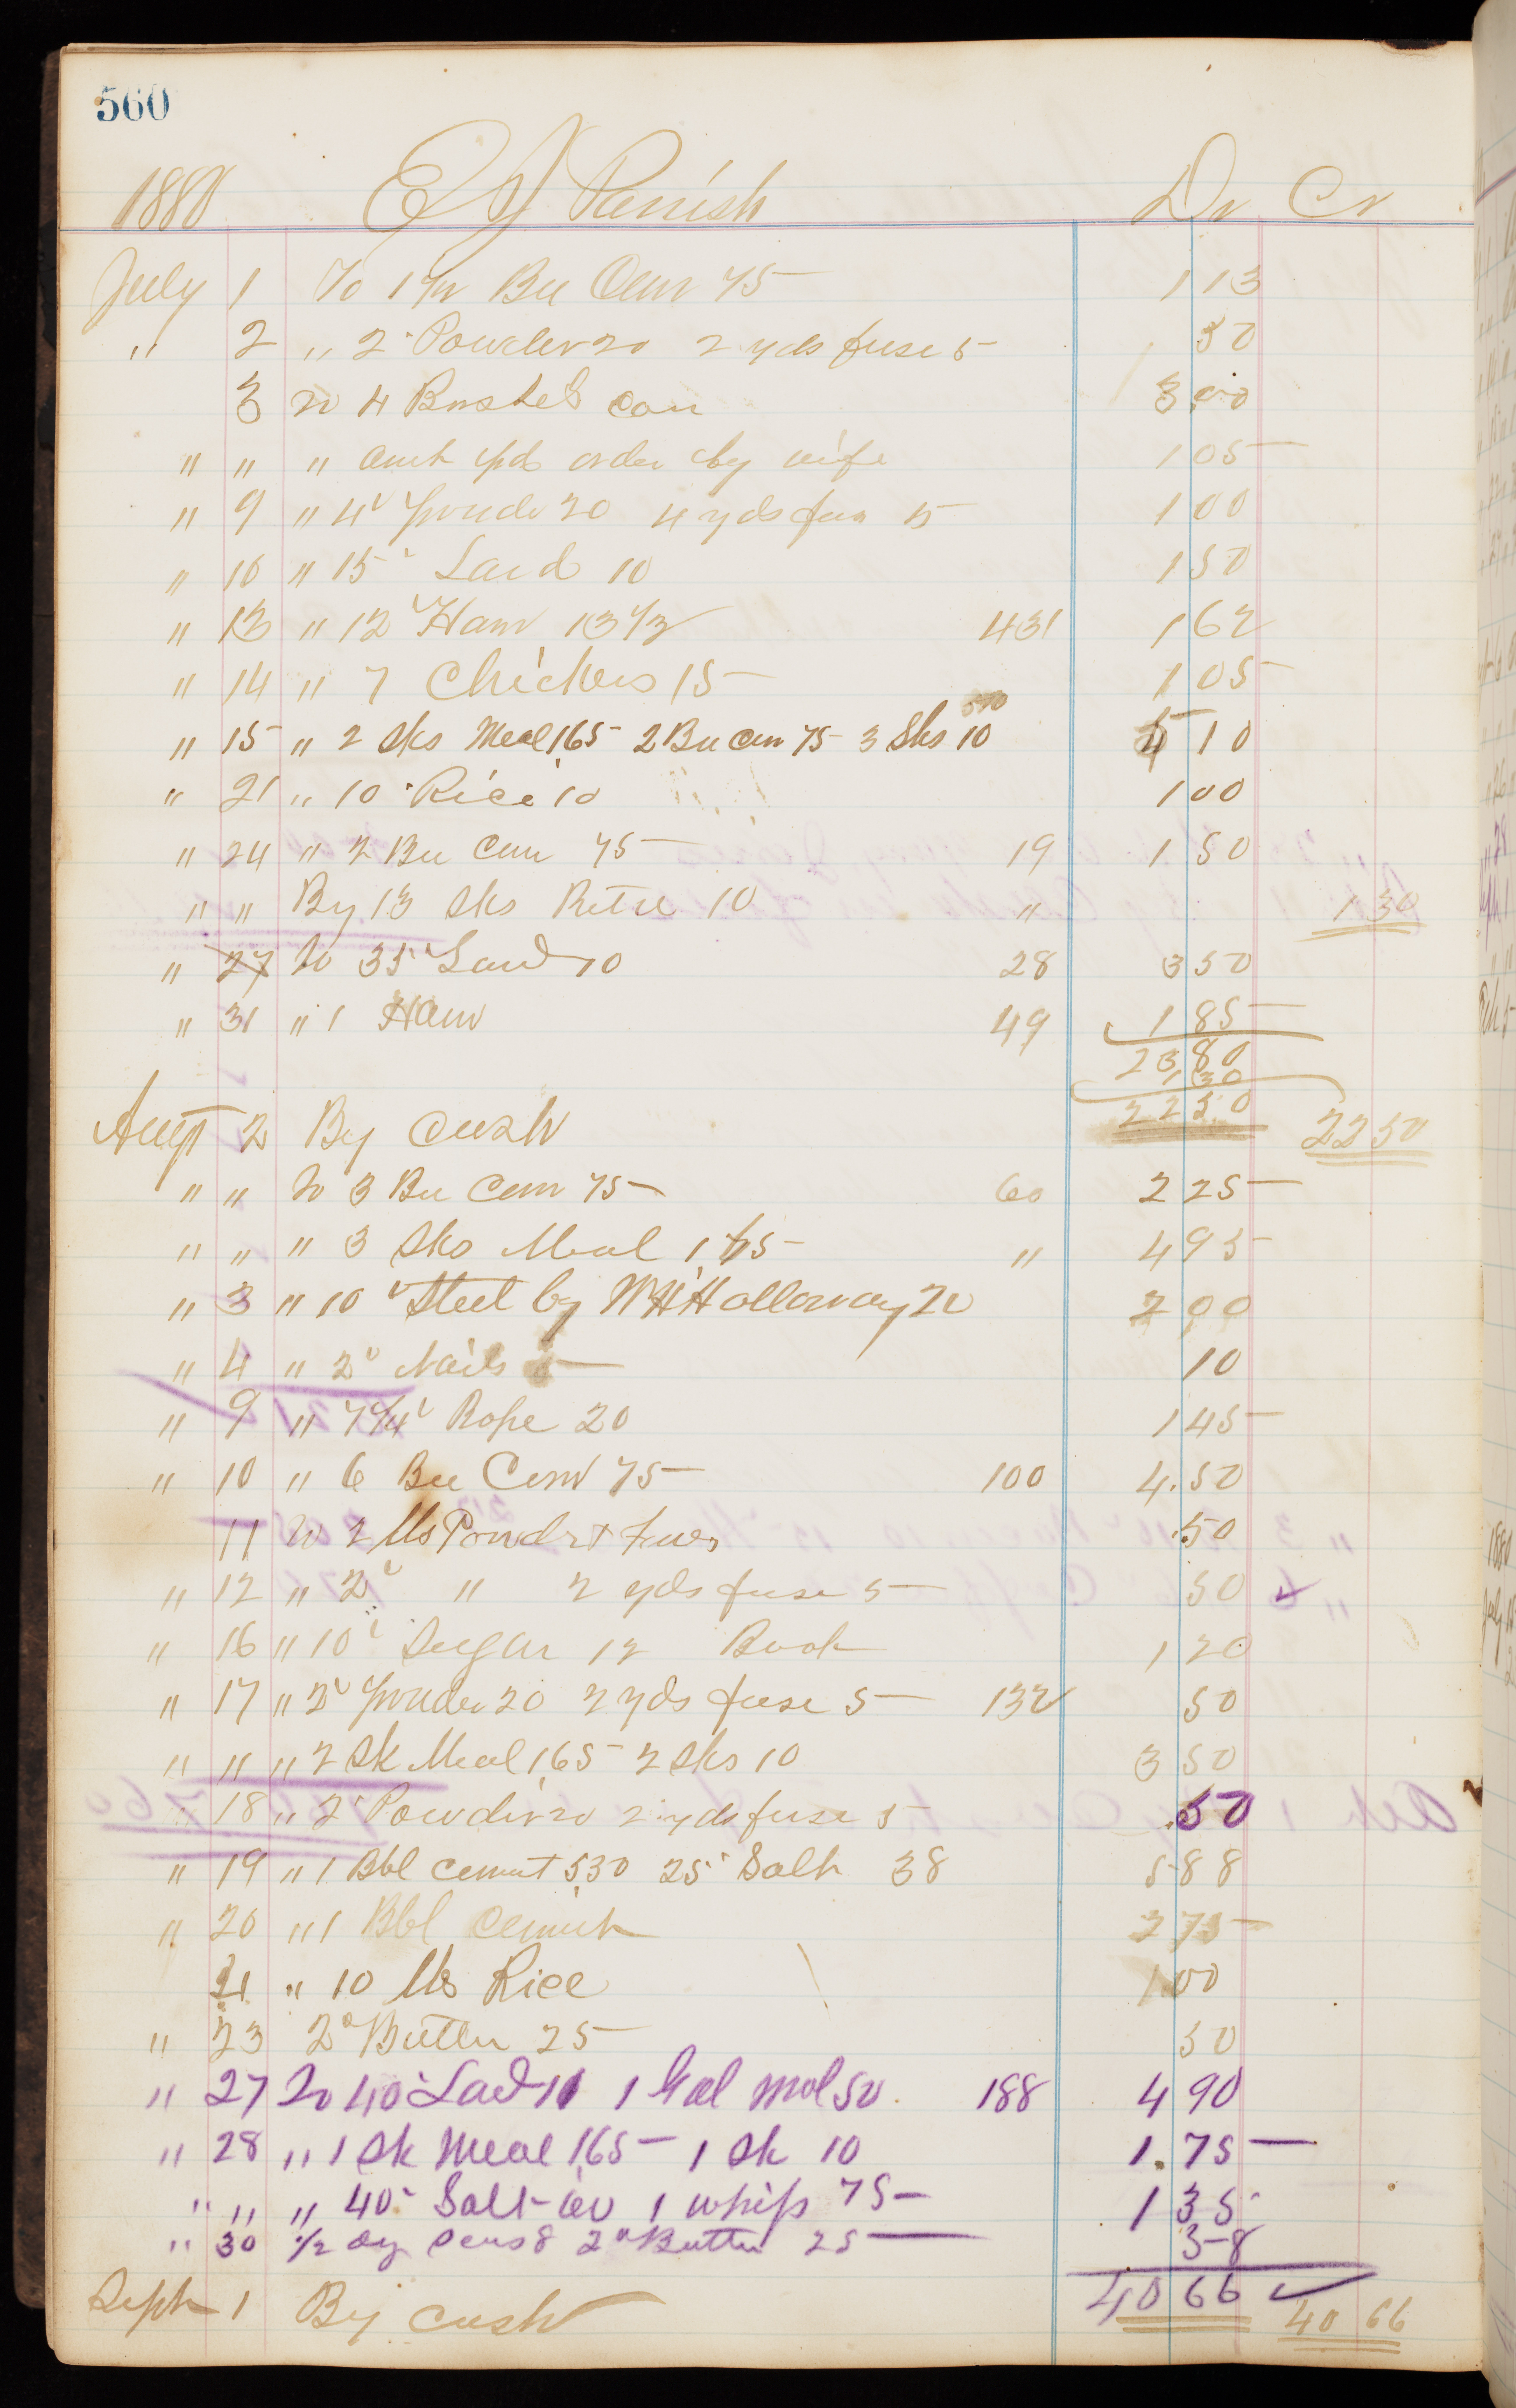 560
1880 E J Parrish Dr Cr
July 1 To 1 1/2 Bu Corn 75 1 13
" 2 " 2 Powder 20 2 yds fuse 5 50
3 To 4 Bushels corn 3 00
" " " amt pd order by wife 1 05
" 9 " 4 Powder 20 4 yds fuse 5 1 00
" 10 " 15 Lard 10 1 50
" 13 " 12 Ham 13 1/2 431 1 62
" 14 " 7 Chickens 15 1 05
" 15 " 2 sks Meal 1,65 2 Bu corn 75 3 Sks 10 5 10
" 21 " 10 Rice 10 1 00
" 24 " 2 Bu Corn 75 19 1 50
" " By 13 Sks Retd 10 " 1 30
" 27 To 35 Lard 10 28 3 50
" 31 " 1 Ham 49 1 85
23 80
1 30
22 50
Augt 2 By Cash 22 50
" " To 3 Bu Corn 75 60 2 25
" " " 3 Sks Meal 1,65 " 4 95
" 3 " 10 Steel by W H Holloway 20 2 00
" 4 " 2 Nails 5 10
" 9 " 7 1/4 Rope 20 1 45
" 10 " 6 Bu Corn 75 100 4.50
11 To 2 lbs Powdr + Fuse .50
" 12 " 2 " 2 yds fuse 5 50
" 16 " 10 Sugar 12 Book 1 20
" 17 " 2 Powder 20 2 yds fuse 5 132 50
" " " 2 Sk Meal 1,65 2 Sks 10 3 50
" 18 " 2 Powder 20 2 yds fuse 5 .50
" 19 " 1 Bbl cement 5,30 25 Salt 38 5 88
" 20 " 1 Bbl Cement 2 75
21 " 10 lbs Rice 1 00
" 23 2 Butter 25 50
" 27 To 40 Lard 11 1 Gal Mol 50 188 4 90
" 28 " 1 Sk Meal 1,65 1 Sk 10 1.75
" " " 40 Salt 60 1 whip 75 1 35
" 30 1/2 2 Butter 25 58
40 66
Sept 1 By cash 40 66